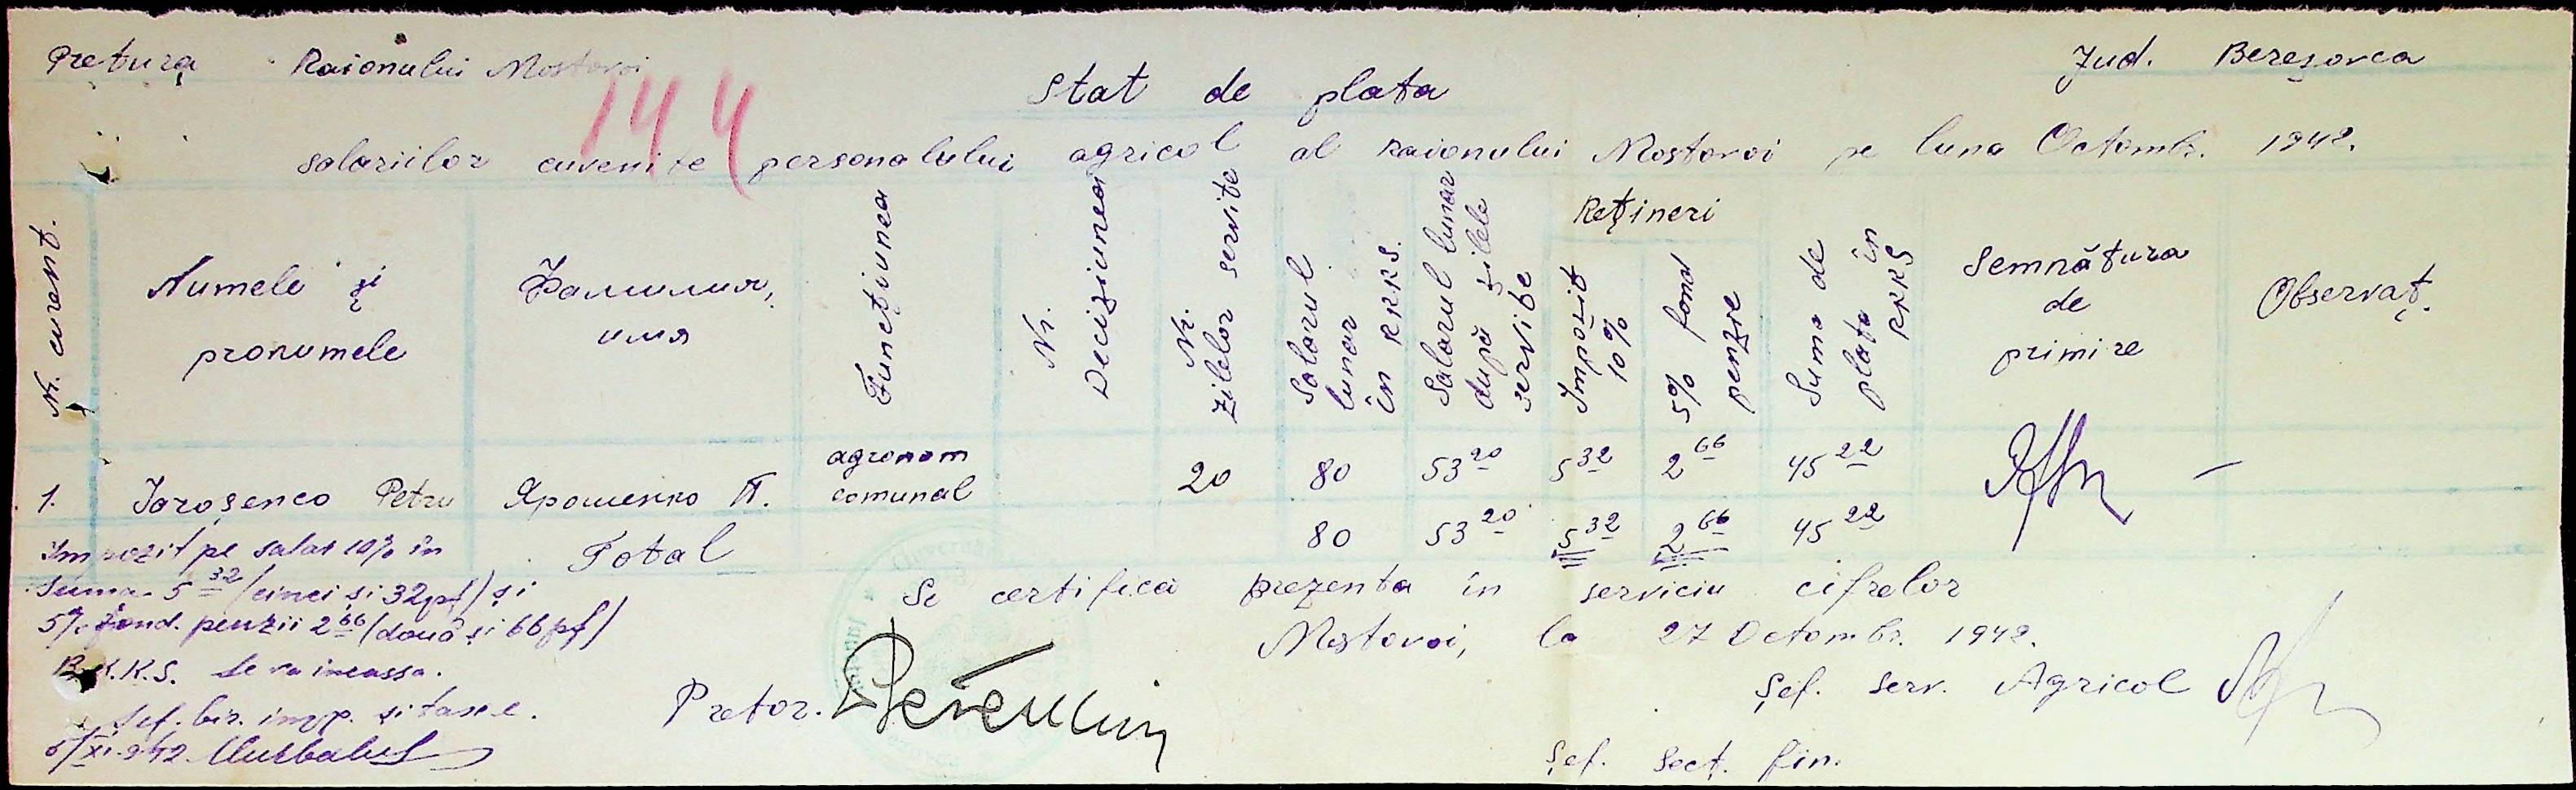 Pretura Raionului Mostovoi
Jud. Bereșovca
144
Stat de plata
salariilor cuvenite personalului agricol al raionului Mostovoi pe luna Octombr. 1942.
Nr. curent.
Numele și pronumele
Фамилия, имя
Funcțiunea
Nr. Deciziunea
Nr. zilelor servite
Salarul lunar în RKKS.
Salarul lunar după zilele servite
Rețineri
Impozit 10%
5% fond penzie
Suma de plata în RKKS
Semnătura de primire
Observaț.
1. Iaroșenco Petru Ярошенко П. agronom comunal 20 80 53 20 5 32 2 66 45 22 –
Total 80 53 20 5 32 2 66 45 22
Impozit pe salar 10% în
suma 5 32 (cinci și 32 pf) și
5% fond. penzii 2 66 (două și 66 pf)
R.K.K.S. se va incassa.
Șef. bir. imp. și taxe.
6/XI.942.
Se certifică prezenta în serviciu cifrelor
Mostovoi, la 27 Octombr. 1942.
Pretor.
Șef. Serv. Agricol
Șef. Secț. fin.